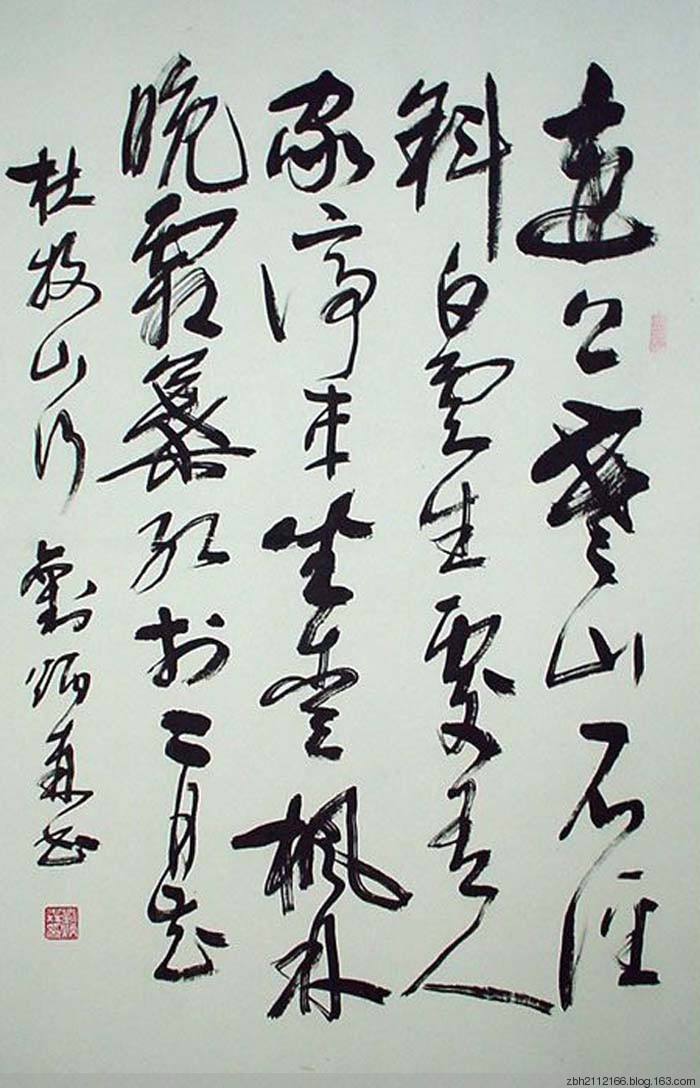 遠上寒山石徑
斜白雲生處有人
家停車坐愛楓林
晚霜葉紅於二月花
杜牧山行 劉炳森書
zbh2112166.blog.163.com